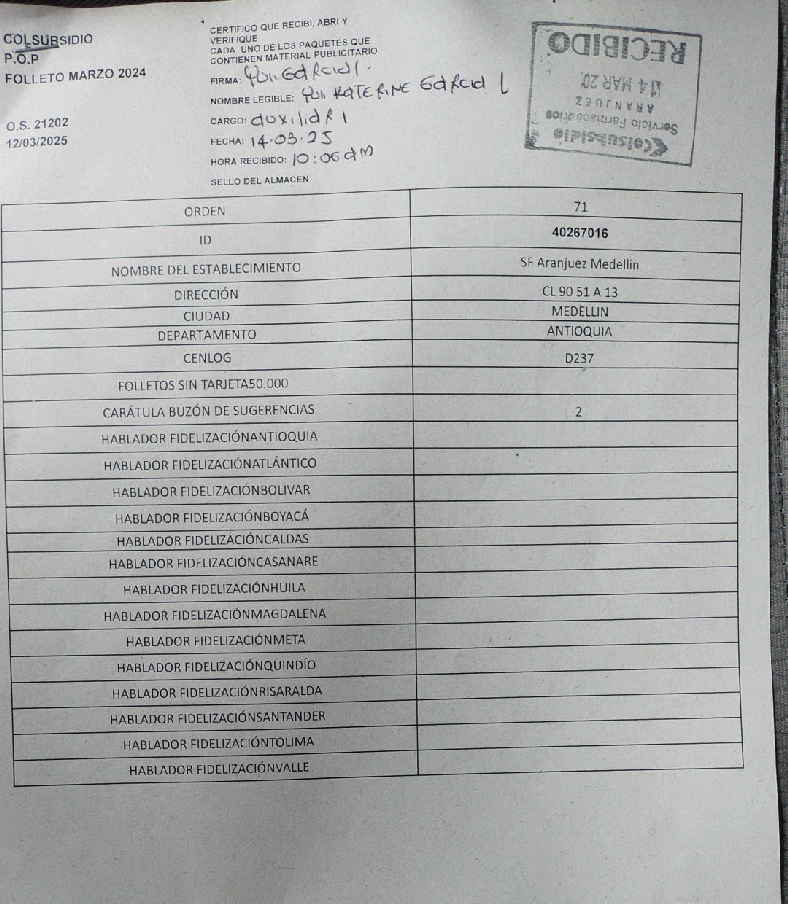 COLSUBSIDIO
P.O.P
FOLLETO MARZO 2024
O.S. 21202
12/03/2025
CERTIFICO QUE RECIBI, ABRI Y
VERIFIQUE
CADA UNO DE LOS PAQUETES QUE
CONTIENEN MATERIAL PUBLICITARIO
FIRMA: Yuli Garcia l.
NOMBRE LEGIBLE: Yuli KATERINE Garcia L
CARGO: auxiliar 1
FECHA: 14-03-25
HORA RECIBIDO: 10:06am
SELLO DEL ALMACEN
Colsubsidio
Servicio Farmacéutico
ARANJUEZ
14 MAR 20
RECIBIDO
ORDEN 71
ID 40267016
NOMBRE DEL ESTABLECIMIENTO SF Aranjuez Medellin
DIRECCIÓN CL 90 51 A 13
CIUDAD MEDELLIN
DEPARTAMENTO ANTIOQUIA
CENLOG D237
FOLLETOS SIN TARJETA50.000
CARÁTULA BUZÓN DE SUGERENCIAS 2
HABLADOR FIDELIZACIÓNANTIOQUIA
HABLADOR FIDELIZACIÓNATLÁNTICO
HABLADOR FIDELIZACIÓNBOLIVAR
HABLADOR FIDELIZACIÓNBOYACÁ
HABLADOR FIDELIZACIÓNCALDAS
HABLADOR FIDELIZACIÓNCASANARE
HABLADOR FIDELIZACIÓNHUILA
HABLADOR FIDELIZACIÓNMAGDALENA
HABLADOR FIDELIZACIÓNMETA
HABLADOR FIDELIZACIÓNQUINDÍO
HABLADOR FIDELIZACIÓNRISARALDA
HABLADOR FIDELIZACIÓNSANTANDER
HABLADOR FIDELIZACIÓNTOLIMA
HABLADOR FIDELIZACIÓNVALLE